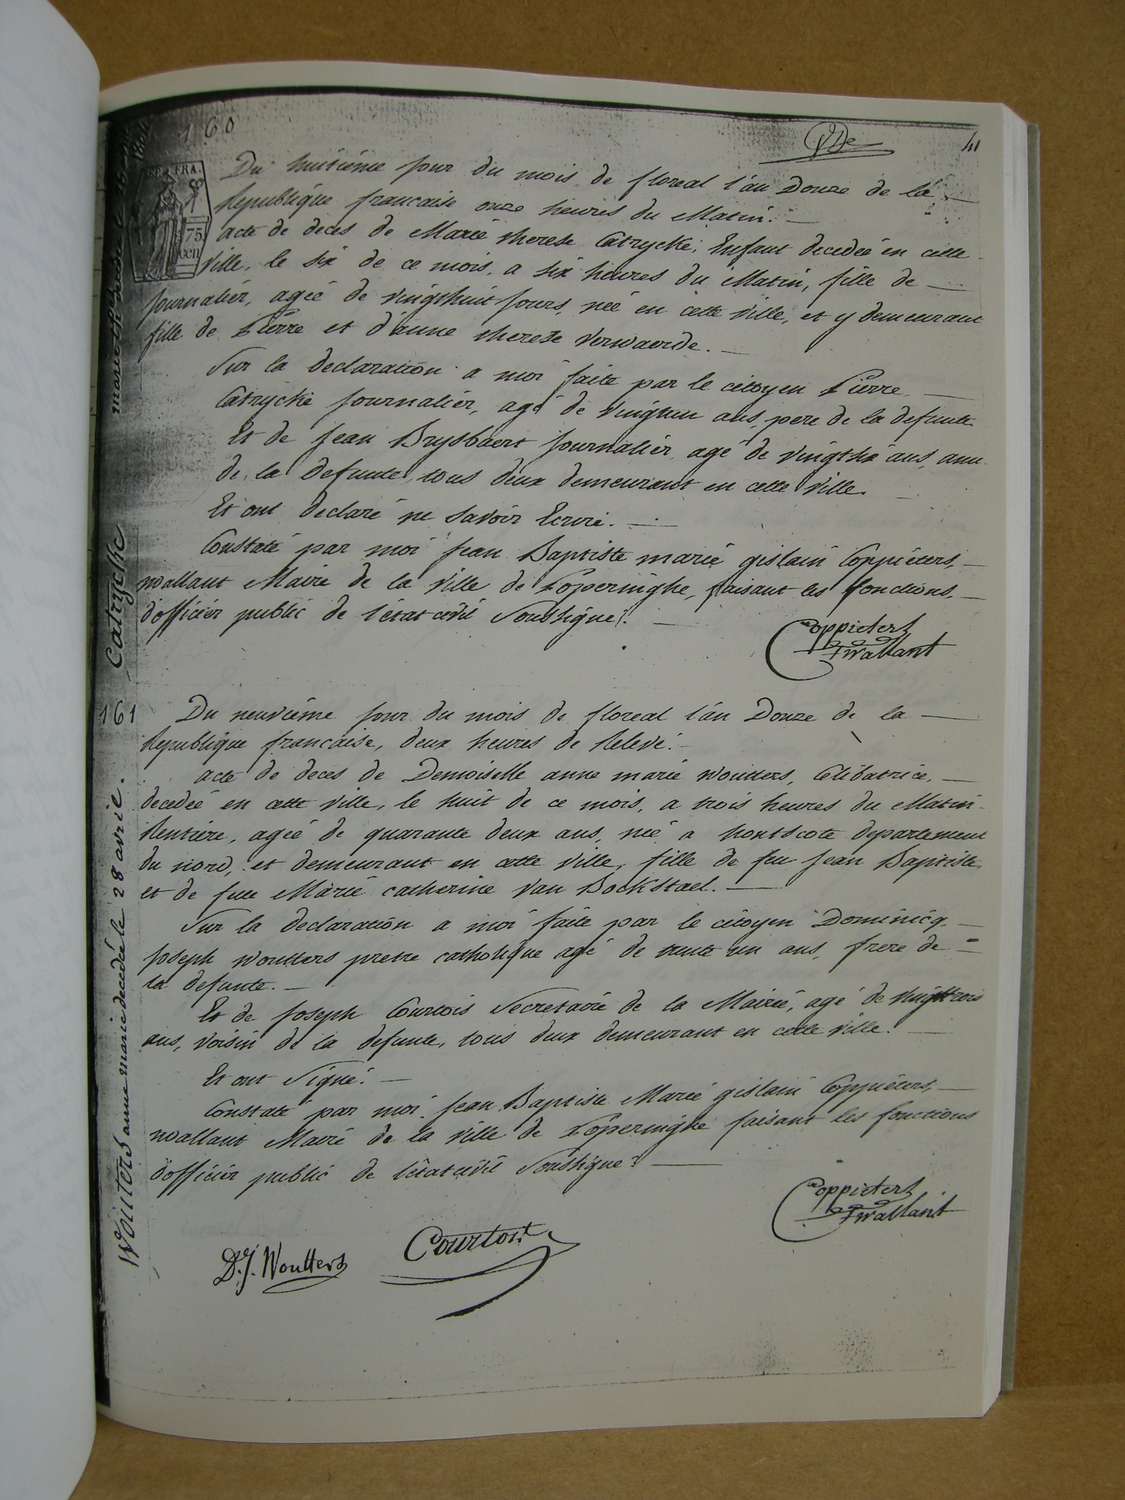 160
VDe
41
FRA.
75
Du huitiéme jour du mois de floreal l'an Douze de la
Republique francaise onze heures du Matin.
acte de deces de Marie therese Catrycke, Enfant decedeé en cette
ville, le six de ce mois, a six heures du Matin, fille de
journalier, ageé de vingthuit jours, neé en cette ville, et y demeurant
fille de Pierre et d'anne therese Verwaerde.
Sur la declaration a moi faite par le citoyen Pierre
Catrycke journalier, agé de vingtun ans, pere de la defunte.
Et de jean Brysbaert journalier agé de vingtsix ans, ami
de la defunte, tous deux demeurant en cette ville.
Et ont declaré ne savoir Ecrire.
Constaté par moi jean Baptiste marie gislain Coppieters,
wallant Maire de la ville de Poperinghe, faisant les fonctions,
d'officier public de l'etat civil Soussigné.
Coppieters
twallant
Catrycke
161
Du neuvième jour du mois de floreal l'an Douze de la
Republique francaise, deux heures de Relevé.
acte de deces de Demoiselle anne marie woutters, Celibatrice,
decedeé en cette ville, le huit de ce mois, a trois heures du Matin
Rentiere, ageé de quarante deux ans, neé a hontscote departement
du nord, et demeurant en cette ville, fille de feu jean Baptiste
et de feue Marie catherine Van Bockstael.
Sur la declaration a moi faite par le citoyen Dominicq
joseph woutters pretre catholique agé de trente un ans, frere de
la defunte.
Et de joseph Courtois Secretaire de la Mairie, agé de vingttrois
ans, voisin de la defunte, tous deux demeurant en cette ville.
Et ont Signé.
Constaté par moi jean Baptiste Marie gislain Coppieters,
wallant Maire de la ville de Poperinghe faisant les fonctions
d'officier public de l'etat civil Soussigné.
Coppieters
twallant
D. J. Woutters
Courtois
Wouters anne marie decedeé le 28 avril.